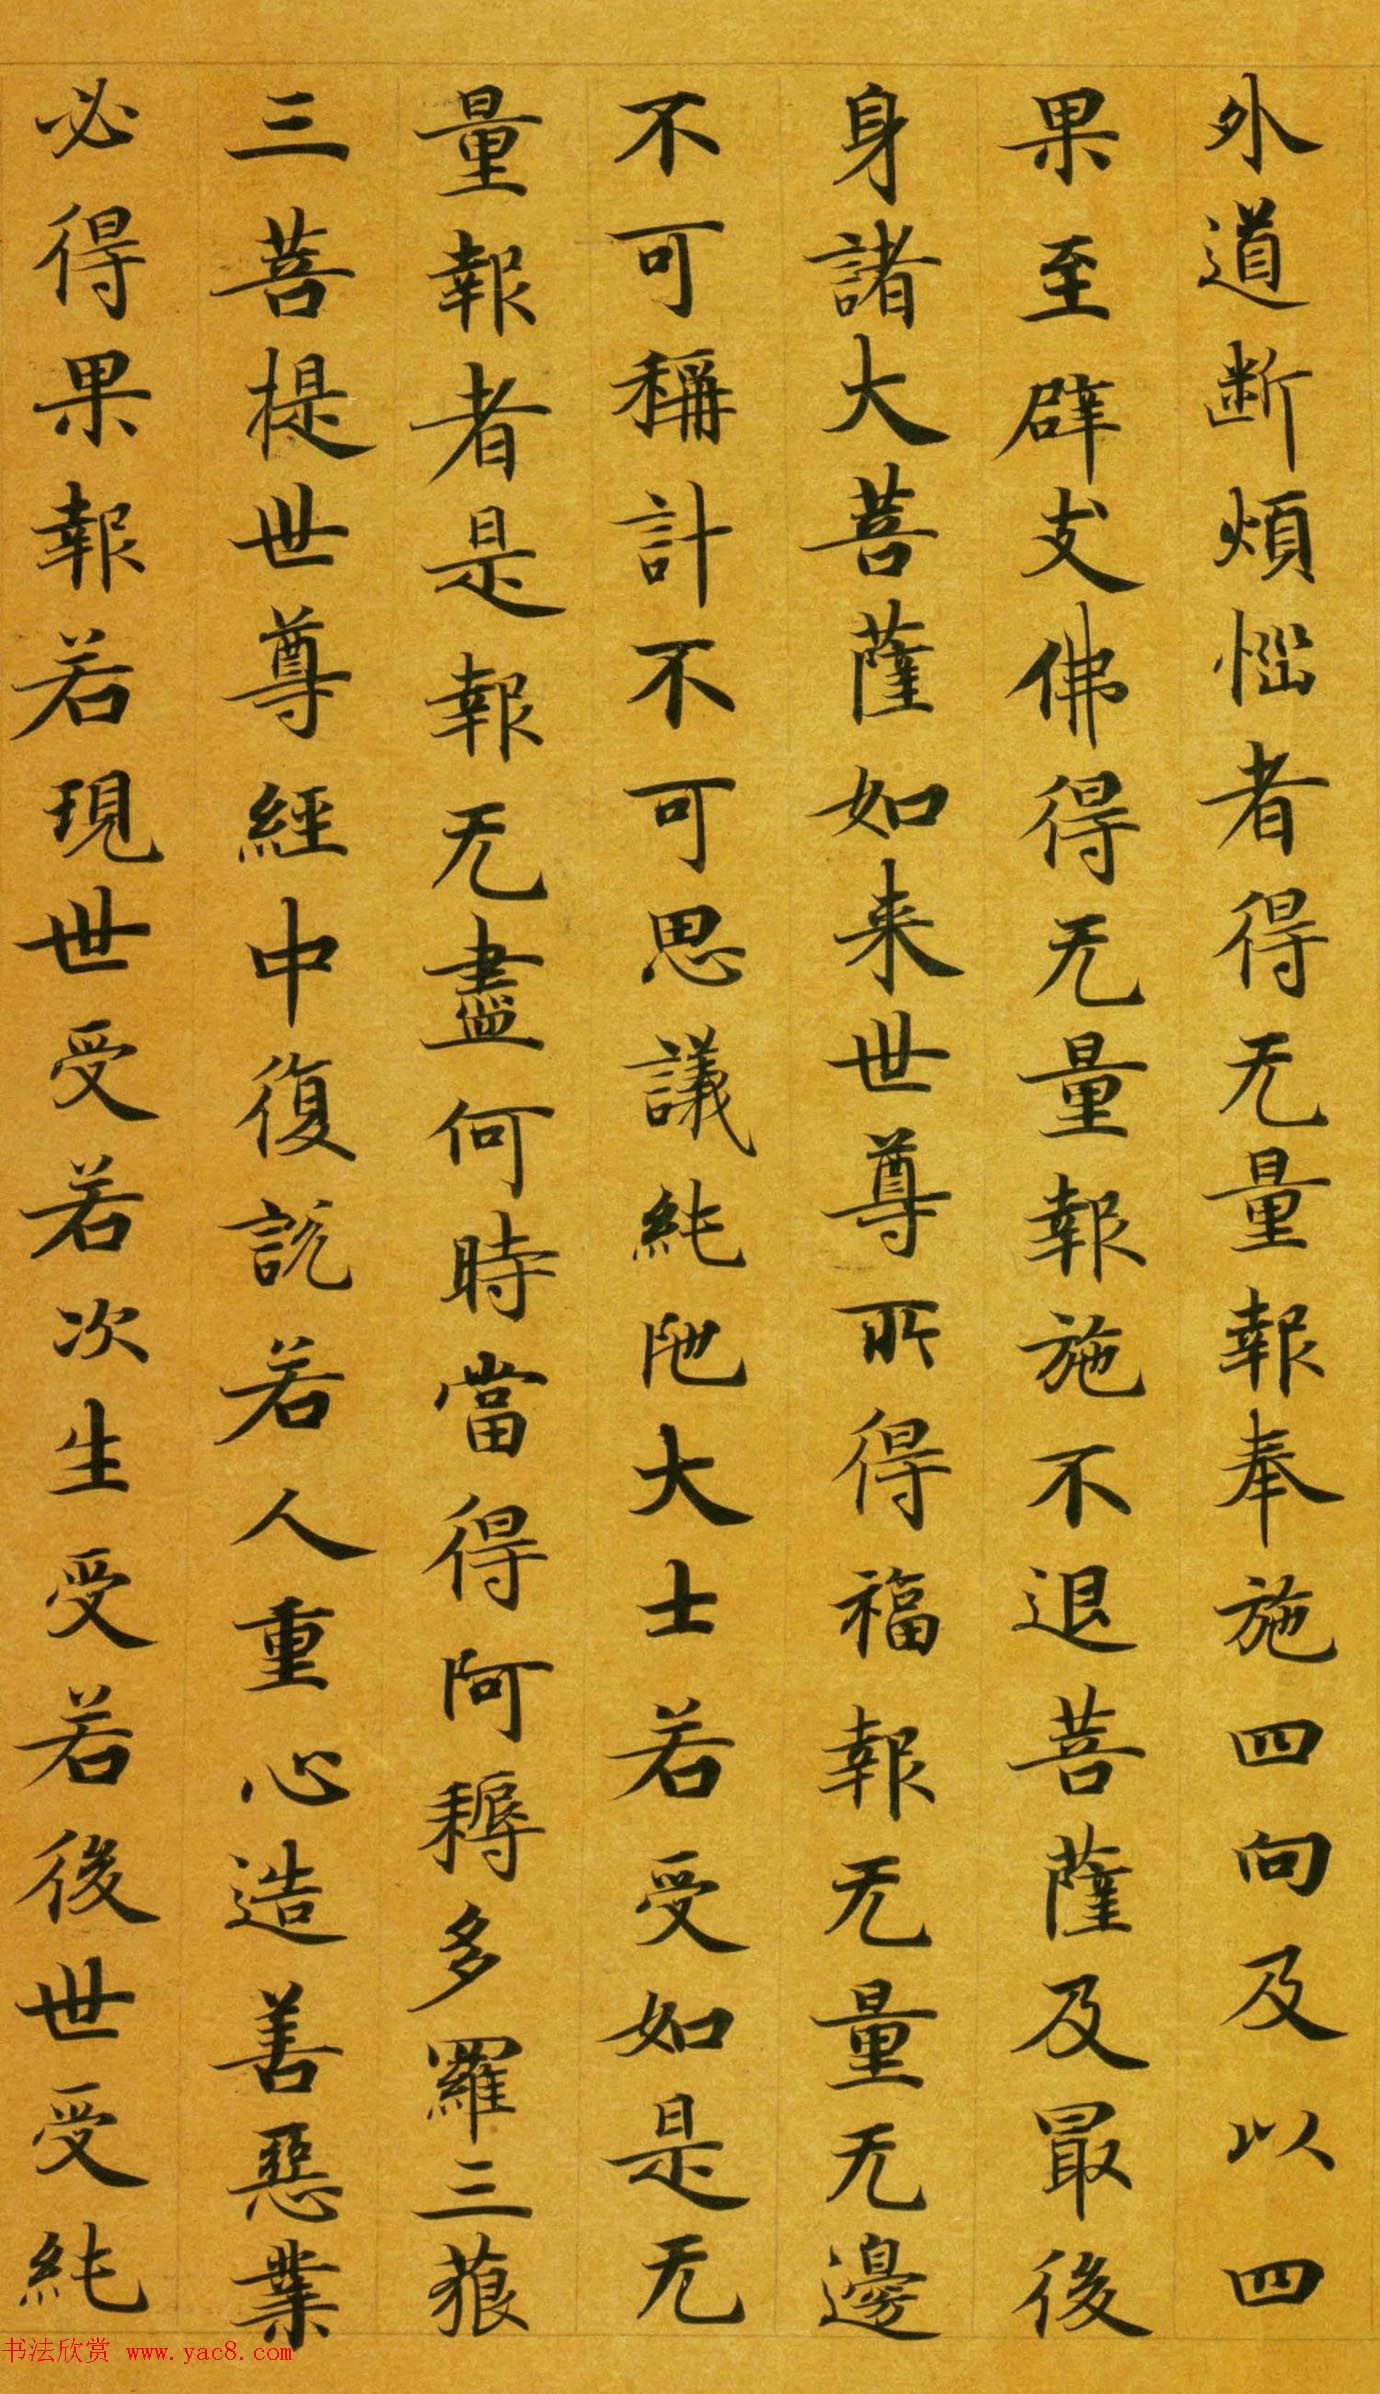 外道断煩惱者得无量報奉施四向及以四
果至辟支佛得无量報施不退菩薩及最後
身諸大菩薩如来世尊所得福報无量无邊
不可稱計不可思議純陁大士若受如是无
量報者是報无盡何時當得阿耨多羅三藐
三菩提世尊經中復説若人重心造善惡業
必得果報若現世受若次生受若後世受純
书法欣赏 www.yac8.com